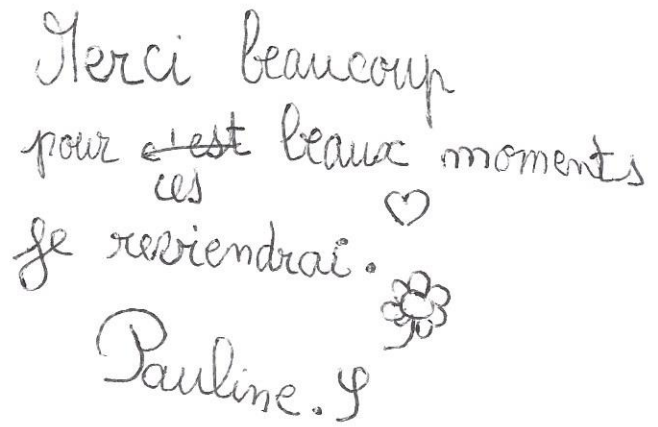 Merci beaucoup
pour c'est beaux moments
ces
Je reviendrai.
Pauline. S